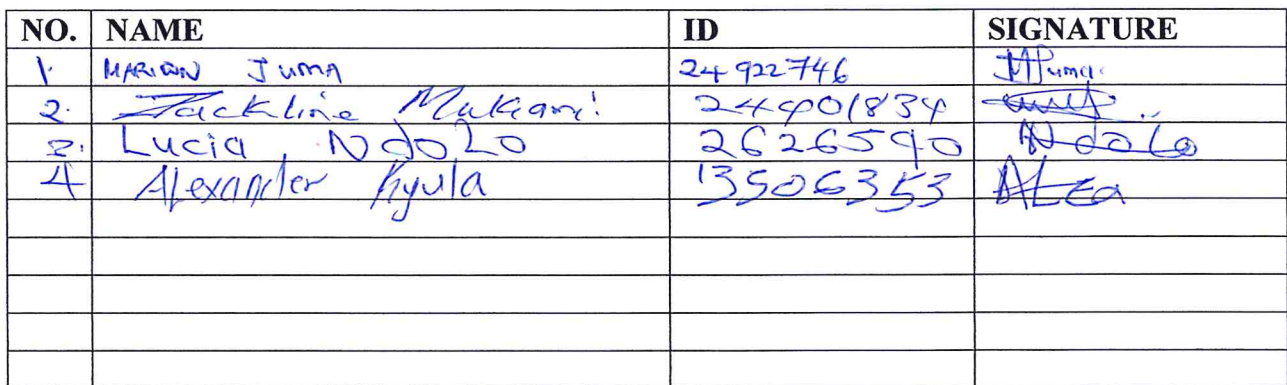 NO. NAME ID SIGNATURE
1. MARION JUMA 24922746 JMuma
2. Jackline Mukami 24401834
3. Lucia Ndolo 2626590 Ndolo
4 Alexander Kyula 13506353 ALEa